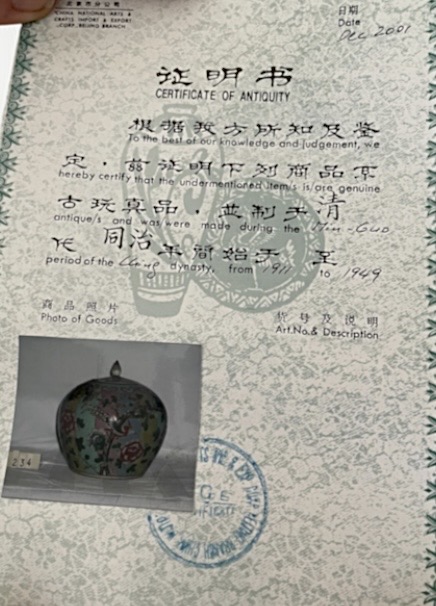 北京市分公司
CHINA NATIONAL ARTS &
CRAFTS IMPORT & EXPORT
CORP., BEIJING BRANCH
日期
Date
Dec 2001
证明书
CERTIFICATE OF ANTIQUITY
根据我方所知及鉴
To the best of our knowledge and judgement, we
定，兹证明下列商品系
hereby certify that the undermentioned item/s is/are genuine
古玩真品，並制于清
antique/s and was/were made during the Min-Guo
代 同治年间始于 至
period of the dynasty, from 1911 to 1949
商品照片
Photo of Goods
货号及说明
Art.No.& Description
234